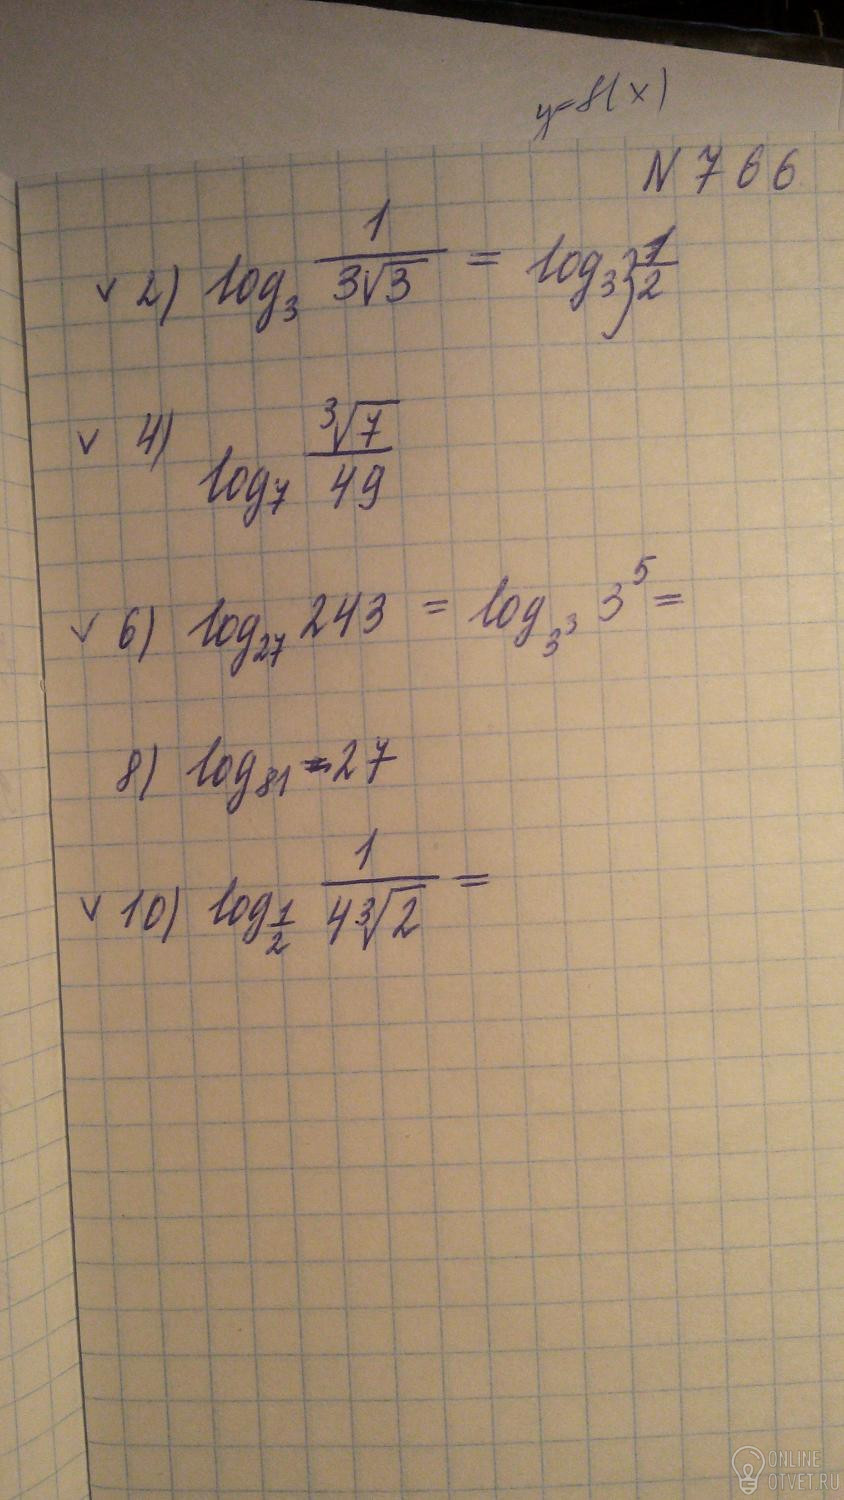 y=f(x)
N 766
v 2) log₃ 1/(3√3) = log₃ 1/2
v 4) log₇ ∛7/49
v 6) log₂₇ 243 = log₃³ 3⁵ =
8) log₈₁ 27
v 10) log_1/2 1/(4∛2) =
ONLINE
OTVET.RU